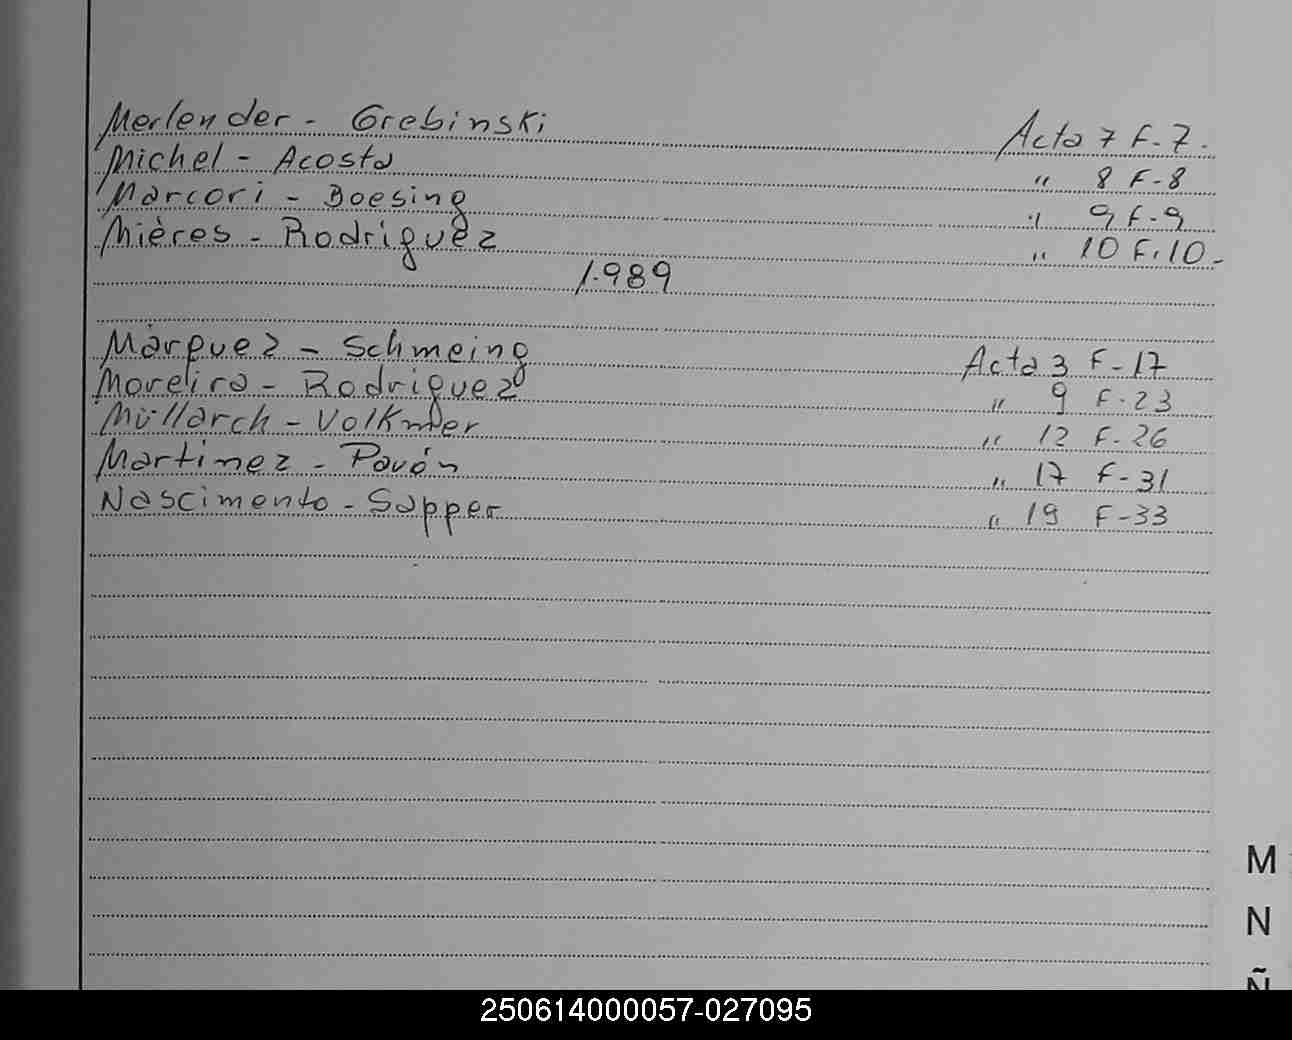 Merlender - Grebinski Acta 7 F-7.
Michel - Acosta " 8 F-8
Marcori - Boesing " 9 F-9
Mières - Rodriguez " 10 F.10-
1.989
Márquez - Schmeing Acta 3 F-17
Moreira - Rodriguez " 9 F-23
Müllarch - Volkmer " 12 F-26
Martinez - Pavón " 17 F-31
Nascimento - Sapper " 19 F-33
M
N
Ñ
250614000057-027095